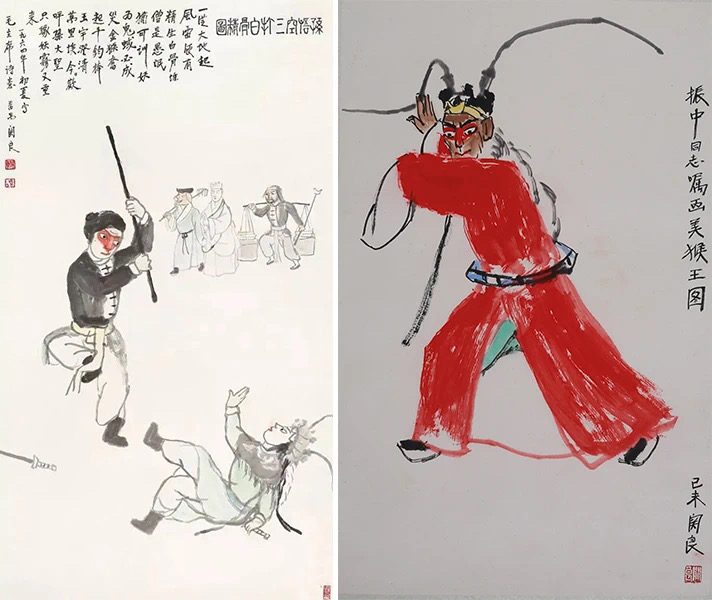 孫悟空三打白骨精圖
一從大地起
風雷便有
精生白骨堆
僧是愚氓
猶可訓妖
為鬼蜮必成
災金猴奮
起千鈞棒
玉宇澄清
萬里埃今歡
呼孫大聖
只緣妖霧又重
来
一九六四年初夏写
毛主席詩意 番禺関良
振中同志嘱画美猴王图
己未関良